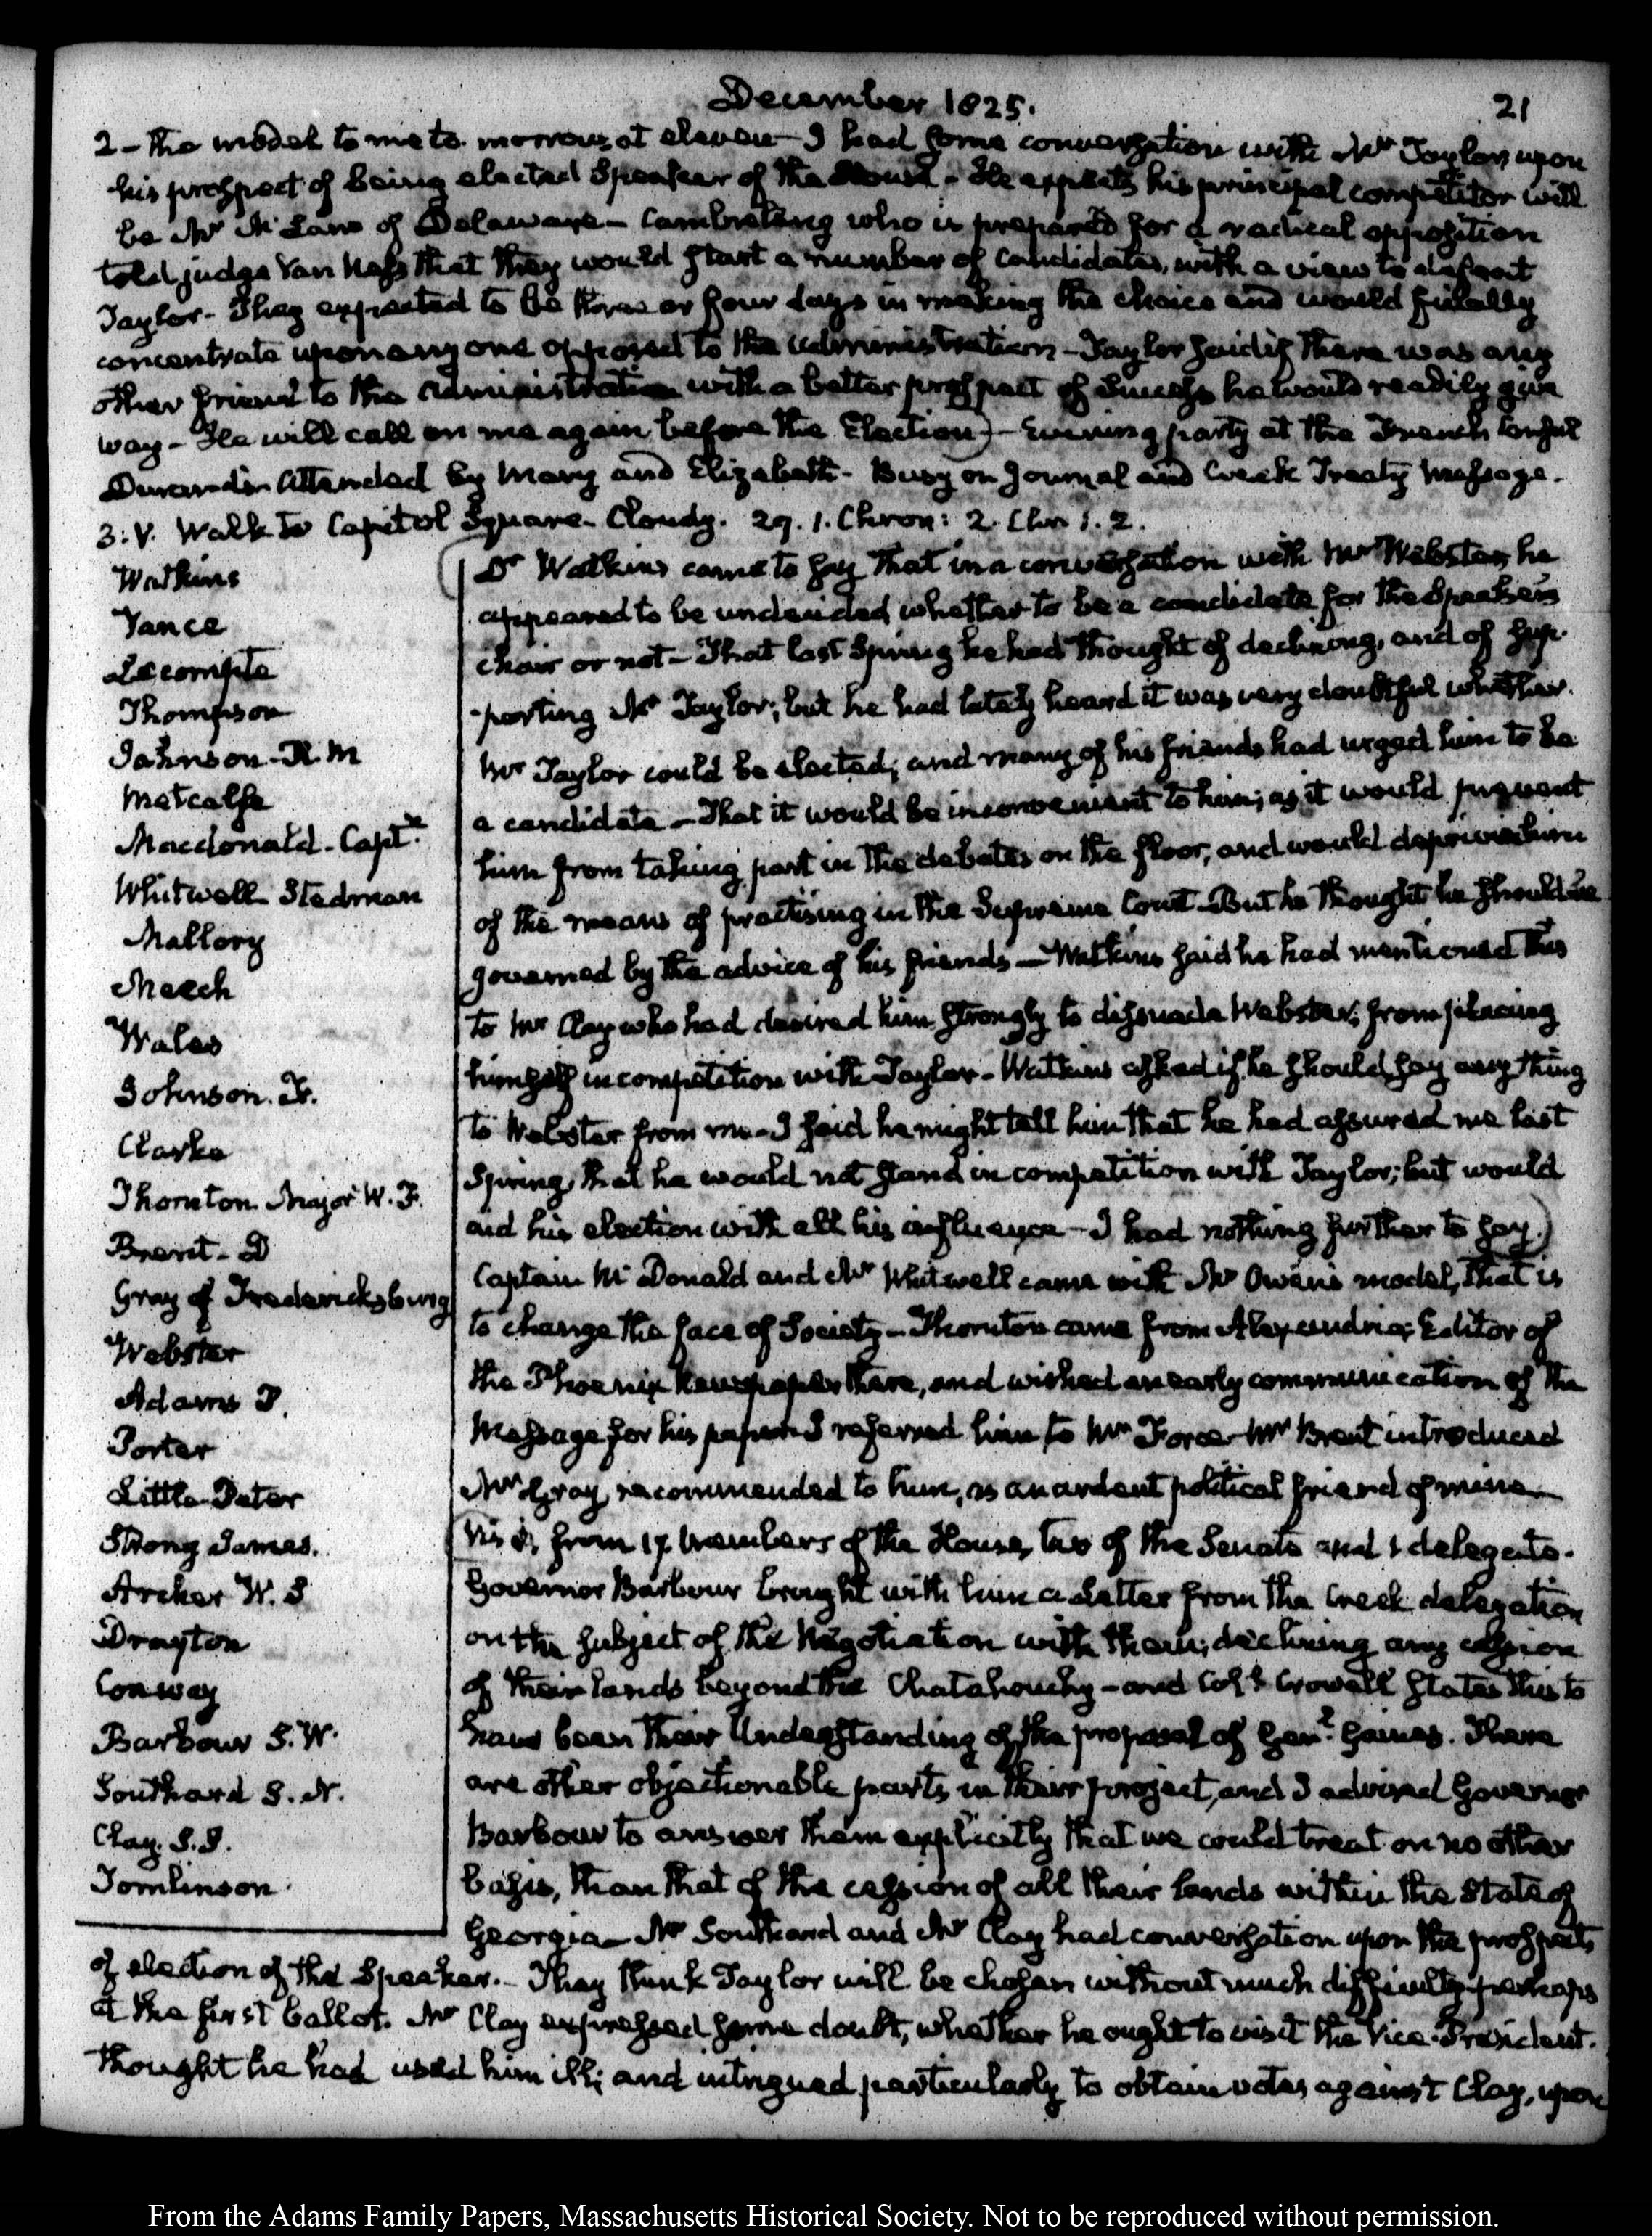 December 1825.
21
2 - the model to me to morrow at eleven - I had some conversation with Mr Taylor, upon
his prospect of being elected Speaker of the House - He expects his principal competitor will
be Mr McLane of Delaware - Cambreleng who is prepared for a radical opposition
told judge Van Ness that they would start a number of candidates, with a view to defeat
Taylor - They expected to be three or four days in making the choice and would finally
concentrate upon any one opposed to the administration - Taylor said if there was any
other friend to the administration with a better prospect of success he would readily give
way - He will call on me again before the Election) - Evening party at the French Consul
Durand's attended by Mary and Elizabeth - Busy on Journal and Creek Treaty Message.
3: V. Walk to Capitol Square. Cloudy. 29. 1. Chron: 2. Chr 1. 2.
Watkins
Vance
Lecompte
Thompson
Johnson - R. M
Metcalfe
Macdonald - Captn
Whitwell Stedman
Mallory
Meech
Wales
Johnson. F.
Clarke
Thornton Major W. F.
Brent - D
Gray of Fredericksburg
Webster
Adams P.
Porter
Little Peter
Strong James.
Archer W. S
Drayton
Conway
Barbour S. W.
Southard S. N.
Clay. S. S.
Tomlinson
(Dr Watkins came to say that in a conversation with Mr Webster, he
appeared to be undecided whether to be a candidate for the Speaker's
chair or not - That last Spring he had thought of declining, and of sup-
-porting Mr Taylor; but he had lately heard it was very doubtful whether
Mr Taylor could be elected; and many of his friends had urged him to be
a candidate - That it would be inconvenient to him; as it would prevent
him from taking part in the debates on the floor, and would deprive him
of the means of practising in the Supreme Court - But he thought he should be
governed by the advice of his friends - Watkins said he had mentioned this
to Mr Clay who had desired him strongly to dissuade Webster from placing
himself in competition with Taylor - Watkins asked if he should say any thing
to Webster from me - I said he might tell him that he had assured me last
Spring, that he would not stand in competition with Taylor; but would
aid his election with all his influence - I had nothing further to say.)
Captain McDonald and Mr Whitwell came with Mr Owen's model, that is
to change the face of Society - Thornton came from Alexandria; Editor of
the Phoenix Newspaper there, and wished an early communication of the
Message for his paper - I referred him to Mr Force - Mr Brent introduced
Mr Gray, recommended to him, as an ardent political friend of mine -
Vis from 17 members of the House, two of the Senate and 1 delegate.
Governor Barbour brought with him a Letter from the Creek delegation
on the subject of the Negotiation with them; declining any cession
of their lands beyond the Chatahouchy - and Coll Crowell states this to
have been their Understanding of the proposal of Genl Gaines. There
are other objectionable parts in their project, and I advised Governor
Barbour to answer them explicitly that we could treat on no other
basis, than that of the cession of all their lands within the State of
Georgia - Mr Southard and Mr Clay had conversation upon the prospects
of election of the Speaker. - They think Taylor will be chosen without much difficulty, perhaps
at the first ballot. Mr Clay expressed some doubt, whether he ought to visit the Vice-President.
thought he had used him ill; and intrigued particularly to obtain votes against Clay, upon
From the Adams Family Papers, Massachusetts Historical Society. Not to be reproduced without permission.